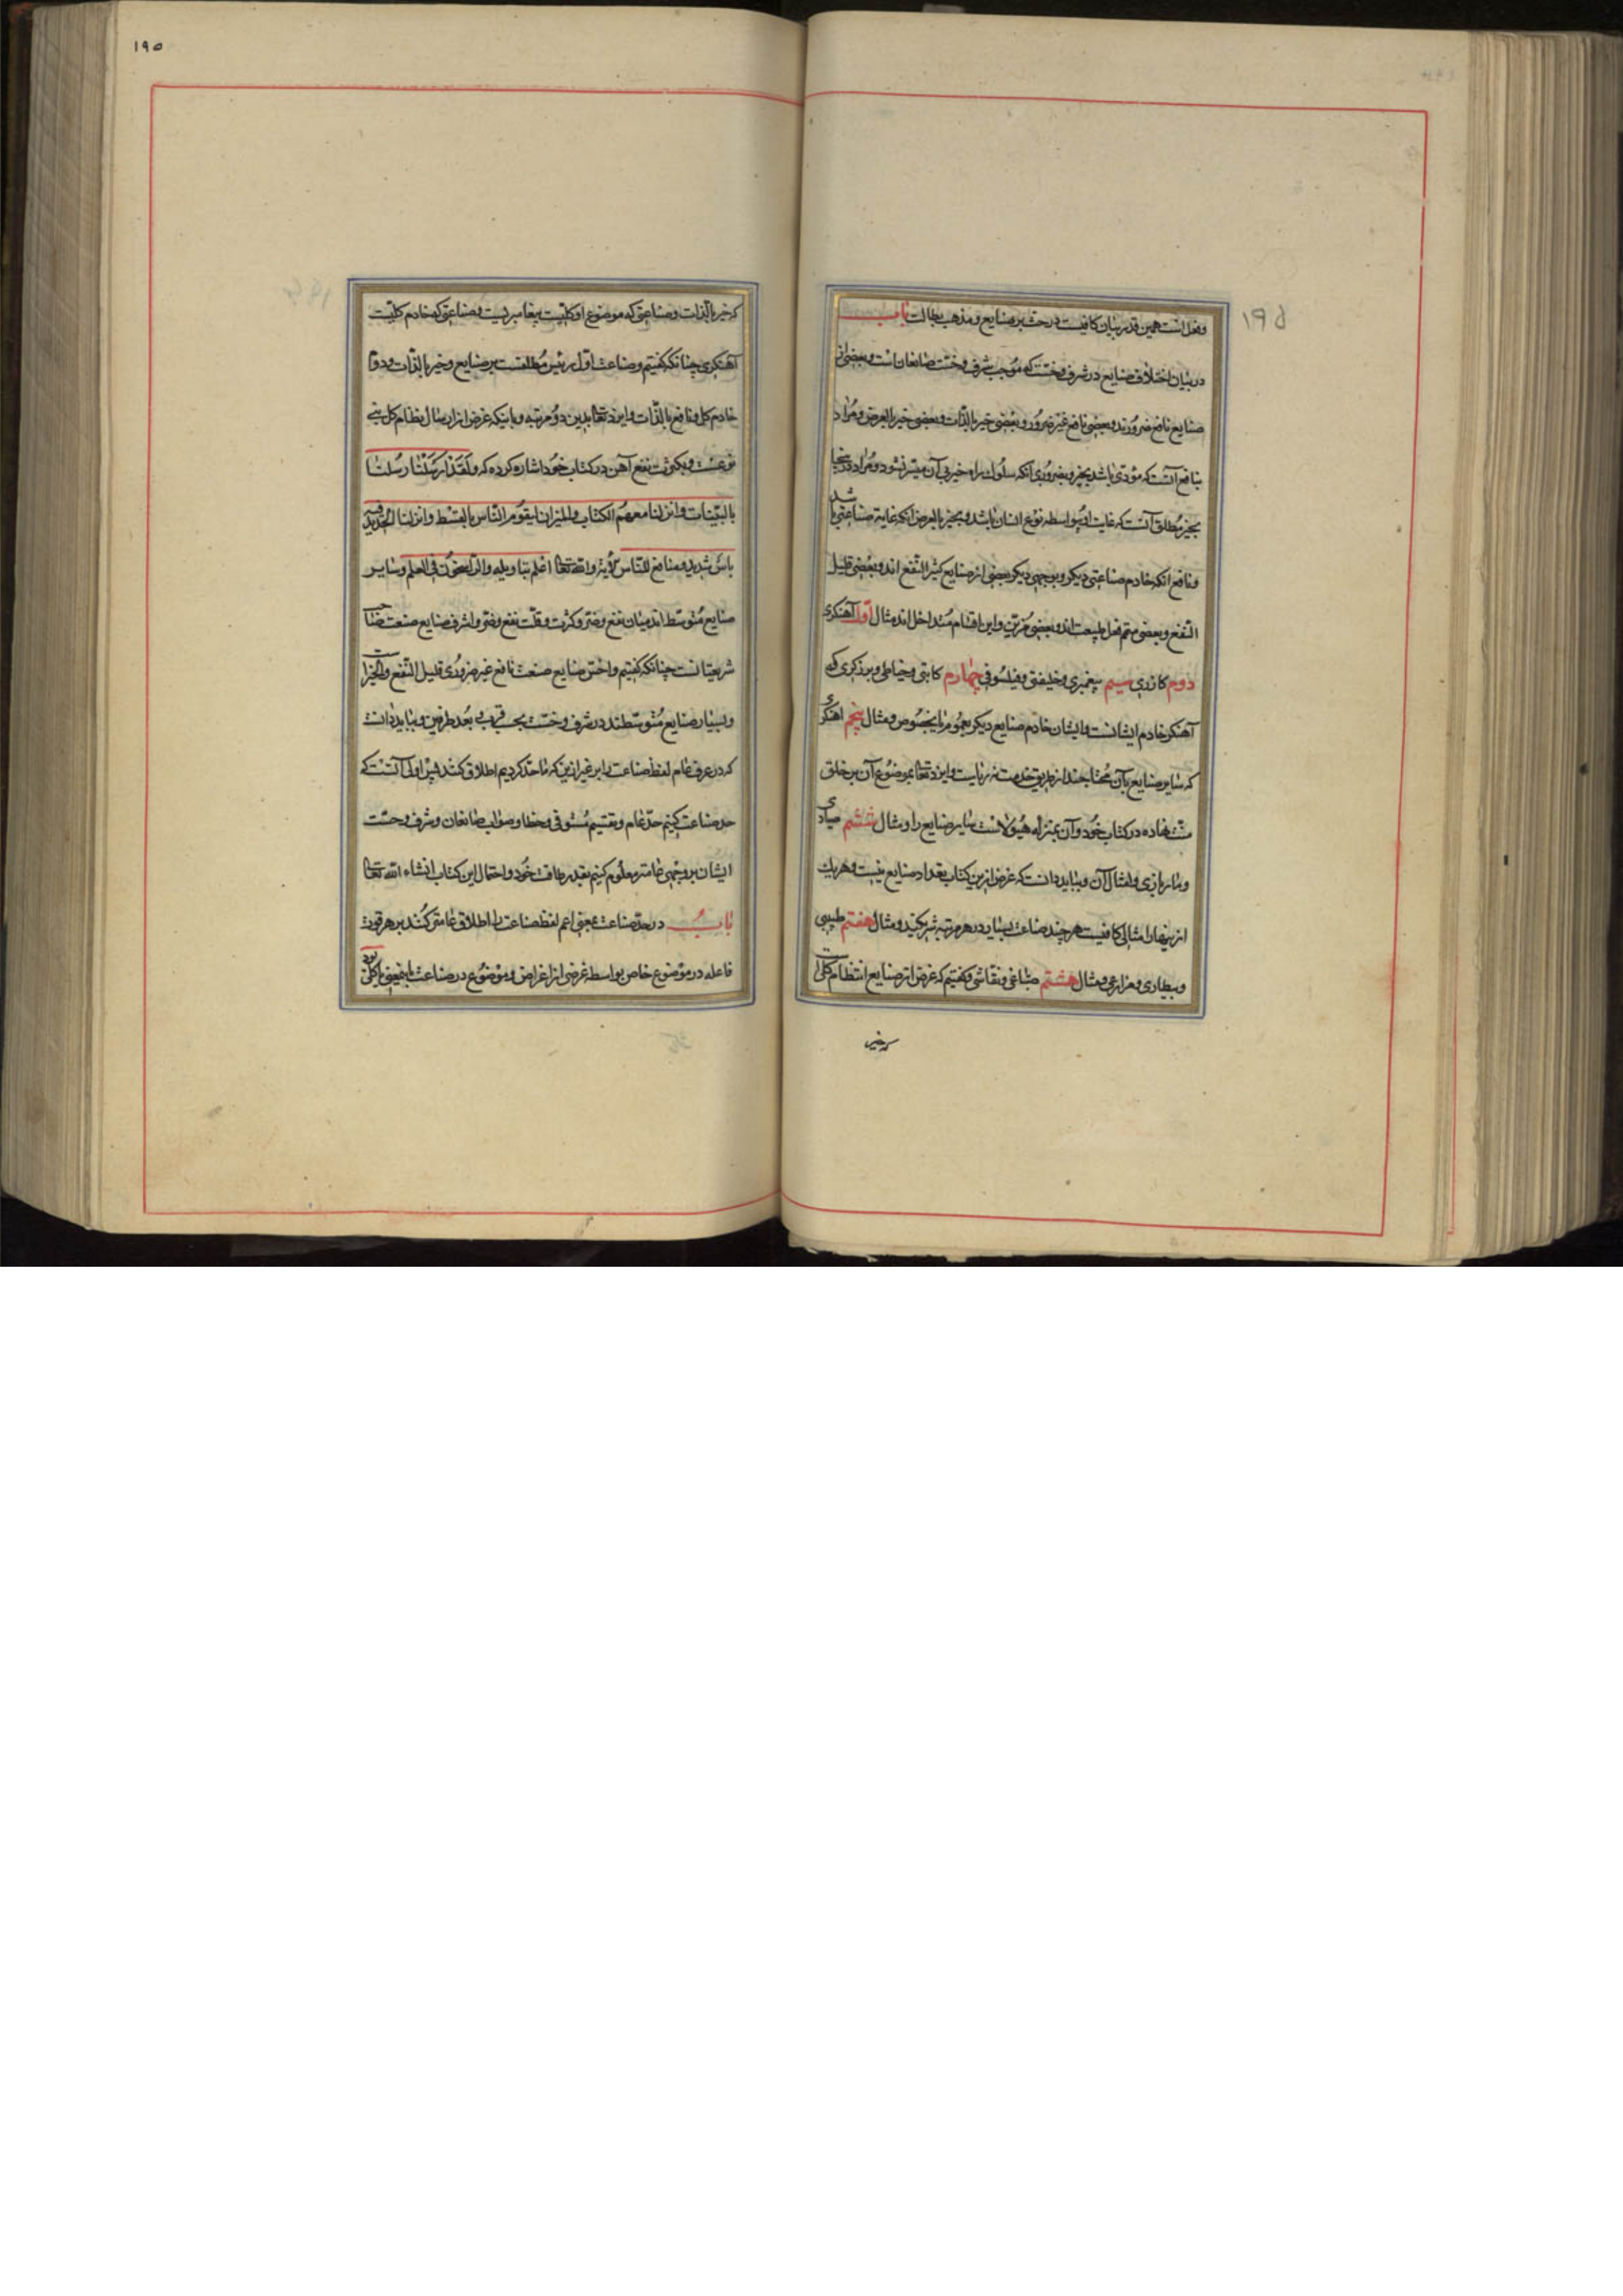 وفعل است همین قدر بیان کافیست در حث بر صنایع و مذهب بطالت باب
در بیان اختلاف صنایع در شرف و خسّت که موجب شرف و خسّت صانعان است و بعضی از
صنایع نافع ضرورند و بعضی نافع غیر ضرور و بعضی خیر بالذات و بعضی خیر بالعرض و مراد
بنافع آنست که مؤدّی باشد بخیر و بضروری آنکه سلوک براه خیر بی آن میسّر نشود و مراد درینجا
بخیر مطلق آنست که غایت او بواسطه نوع انسان باشد و بخیر بالعرض آنکه غایة صناعتی باشد
ونافع آنکه خادم صناعتی دیگر و بوجهی دیگر بعضی از صنایع کثیر النّفع اند و بعضی قلیل
النّفع و بعضی متمّم فعل طبیعت اند و بعضی مزیّن و این اقسام متداخل اند مثال اوّل آهنکری
دوم کازری سیم پیغمبری و خلیفتی و فیلسوفی چهارم کاتبی و خیاطی و برزکری که
آهنکر خادم ایشانست و ایشان خادم صنایع دیکر بعموم یا بخصوص و مثال پنجم آهنکری
که سایر صنایع بآن محتاجند از طریق خدمت نه ریاست و ایزد تعالی بموضوع آن بر خلق
منّت نهاده در کتاب خود و آن بمنزله هیولاست سایر صنایع را و مثال ششم صیادی
و مار بازی و امثال آن و بباید دانست که غرض ازین کتاب تعداد صنایع نیست و هر یک
ازینها را مثالی کافیست هر چند صناعت بسیار در هر مرتبه شریکند و مثال هفتم طبیبی
و بیطاری و مزارعی و مثال هشتم صبّاغی و نقاشی و کفتیم که غرض از صنایع انتظام کلّی است
که خیر
۱۹۵
۱۹۵
که خیر بالذات و صناعتی که موضوع او کلّیست پیغامبریست و صناعتی که خادم کلّیست
آهنکری چنانکه کفتیم و صناعت اوّل رئیس مطلقست بر صنایع و خیر بالذات و دوم
خادم کل و نافع بالذات و ایزد تعالی بدین دو مرتبه و باینکه غرض از ارسال نظام کل بنی
نوعست و بکثرت نفع آهن در کتاب خود اشاره کرده که ولقد ارسلنا رسلنا
بالبیّنات و انزلنا معهم الکتاب والمیزان لیقوم النّاس بالقسط وانزلنا الحدید فیه
بأس شدید و منافع للنّاس الآیة والله تعالی اعلم بتاویله والرّاسخون فی العلم و سایر
صنایع متوسّط اند میان نفع و ضرّ و کثرت و قلّت نفع و ضرّ و اشرف صنایع صنعت صاحب
شریعتانست چنانکه کفتیم و اخسّ صنایع صنعت نافع غیر ضروری قلیل النّفع والخیرات
و بسیار صنایع متوسّطند در شرف و خسّت بحسب قرب و بعد طرفین و بباید دانست
که در عرف عام لفظ صناعت را بر غیر ازین که ما حدّ کردیم اطلاق کنند پس اولی آنست که
حد صناعت کنیم حدّ عام و تقسیم مستوفی و خطا و صواب صانعان و شرف و خسّت
ایشان بر وجهی عامتر معلوم کنیم بقدر طاقت خود و احتمال این کتاب انشاء الله تعالی
باب در حدّ صناعت بمعنی اعم لفظ صناعت را اطلاق عامتر کنند بر هر قوت
فاعله در موضوع خاص بواسطه غرضی از اغراض و موضوع در صناعت باینمعنی یا کلّی بود